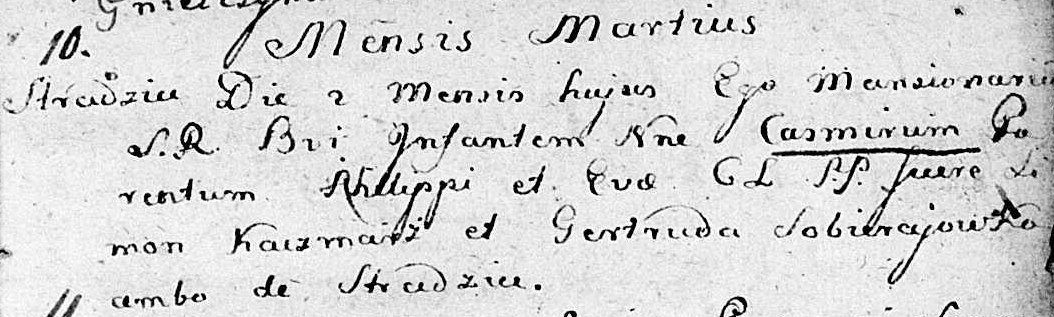 10. Mensis Martius
Stradziu Die 2 Mensis hujus Ego Mansionarius
S. R. Bvi Infantem Nne Casmirum Pa
rentum Phllippi et Evæ C L P.P. fuere Si
mon Kaczmarz et Gertruda Sobierajowka
ambo de Stradziu.
11